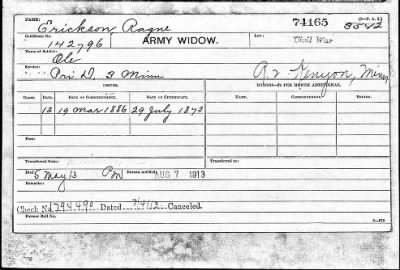 NAME: Erickson Ragne 74165 (3-P. A. 2.) 8542
Certificate No. 142796 ARMY WIDOW. LAW: Old War
Name of Soldier: Ole
Service: Pri D, 3 Minn R 2 Kenyon, Minn
MINORS—$2 PER MONTH ADDITIONAL.
CLASS. RATE. DATE OF COMMENCEMENT. DATE OF CERTIFICATE. NAME. COMMENCEMENT. ENDING.
12 19 Mar 1886 29 July 1873
Transferred from
Transferred to
Died 5 May 13 PM Bureau notified AUG 7 1913
Remarks:
Check No. 1794490 Dated 7/4/13 Canceled.
Former Roll No.